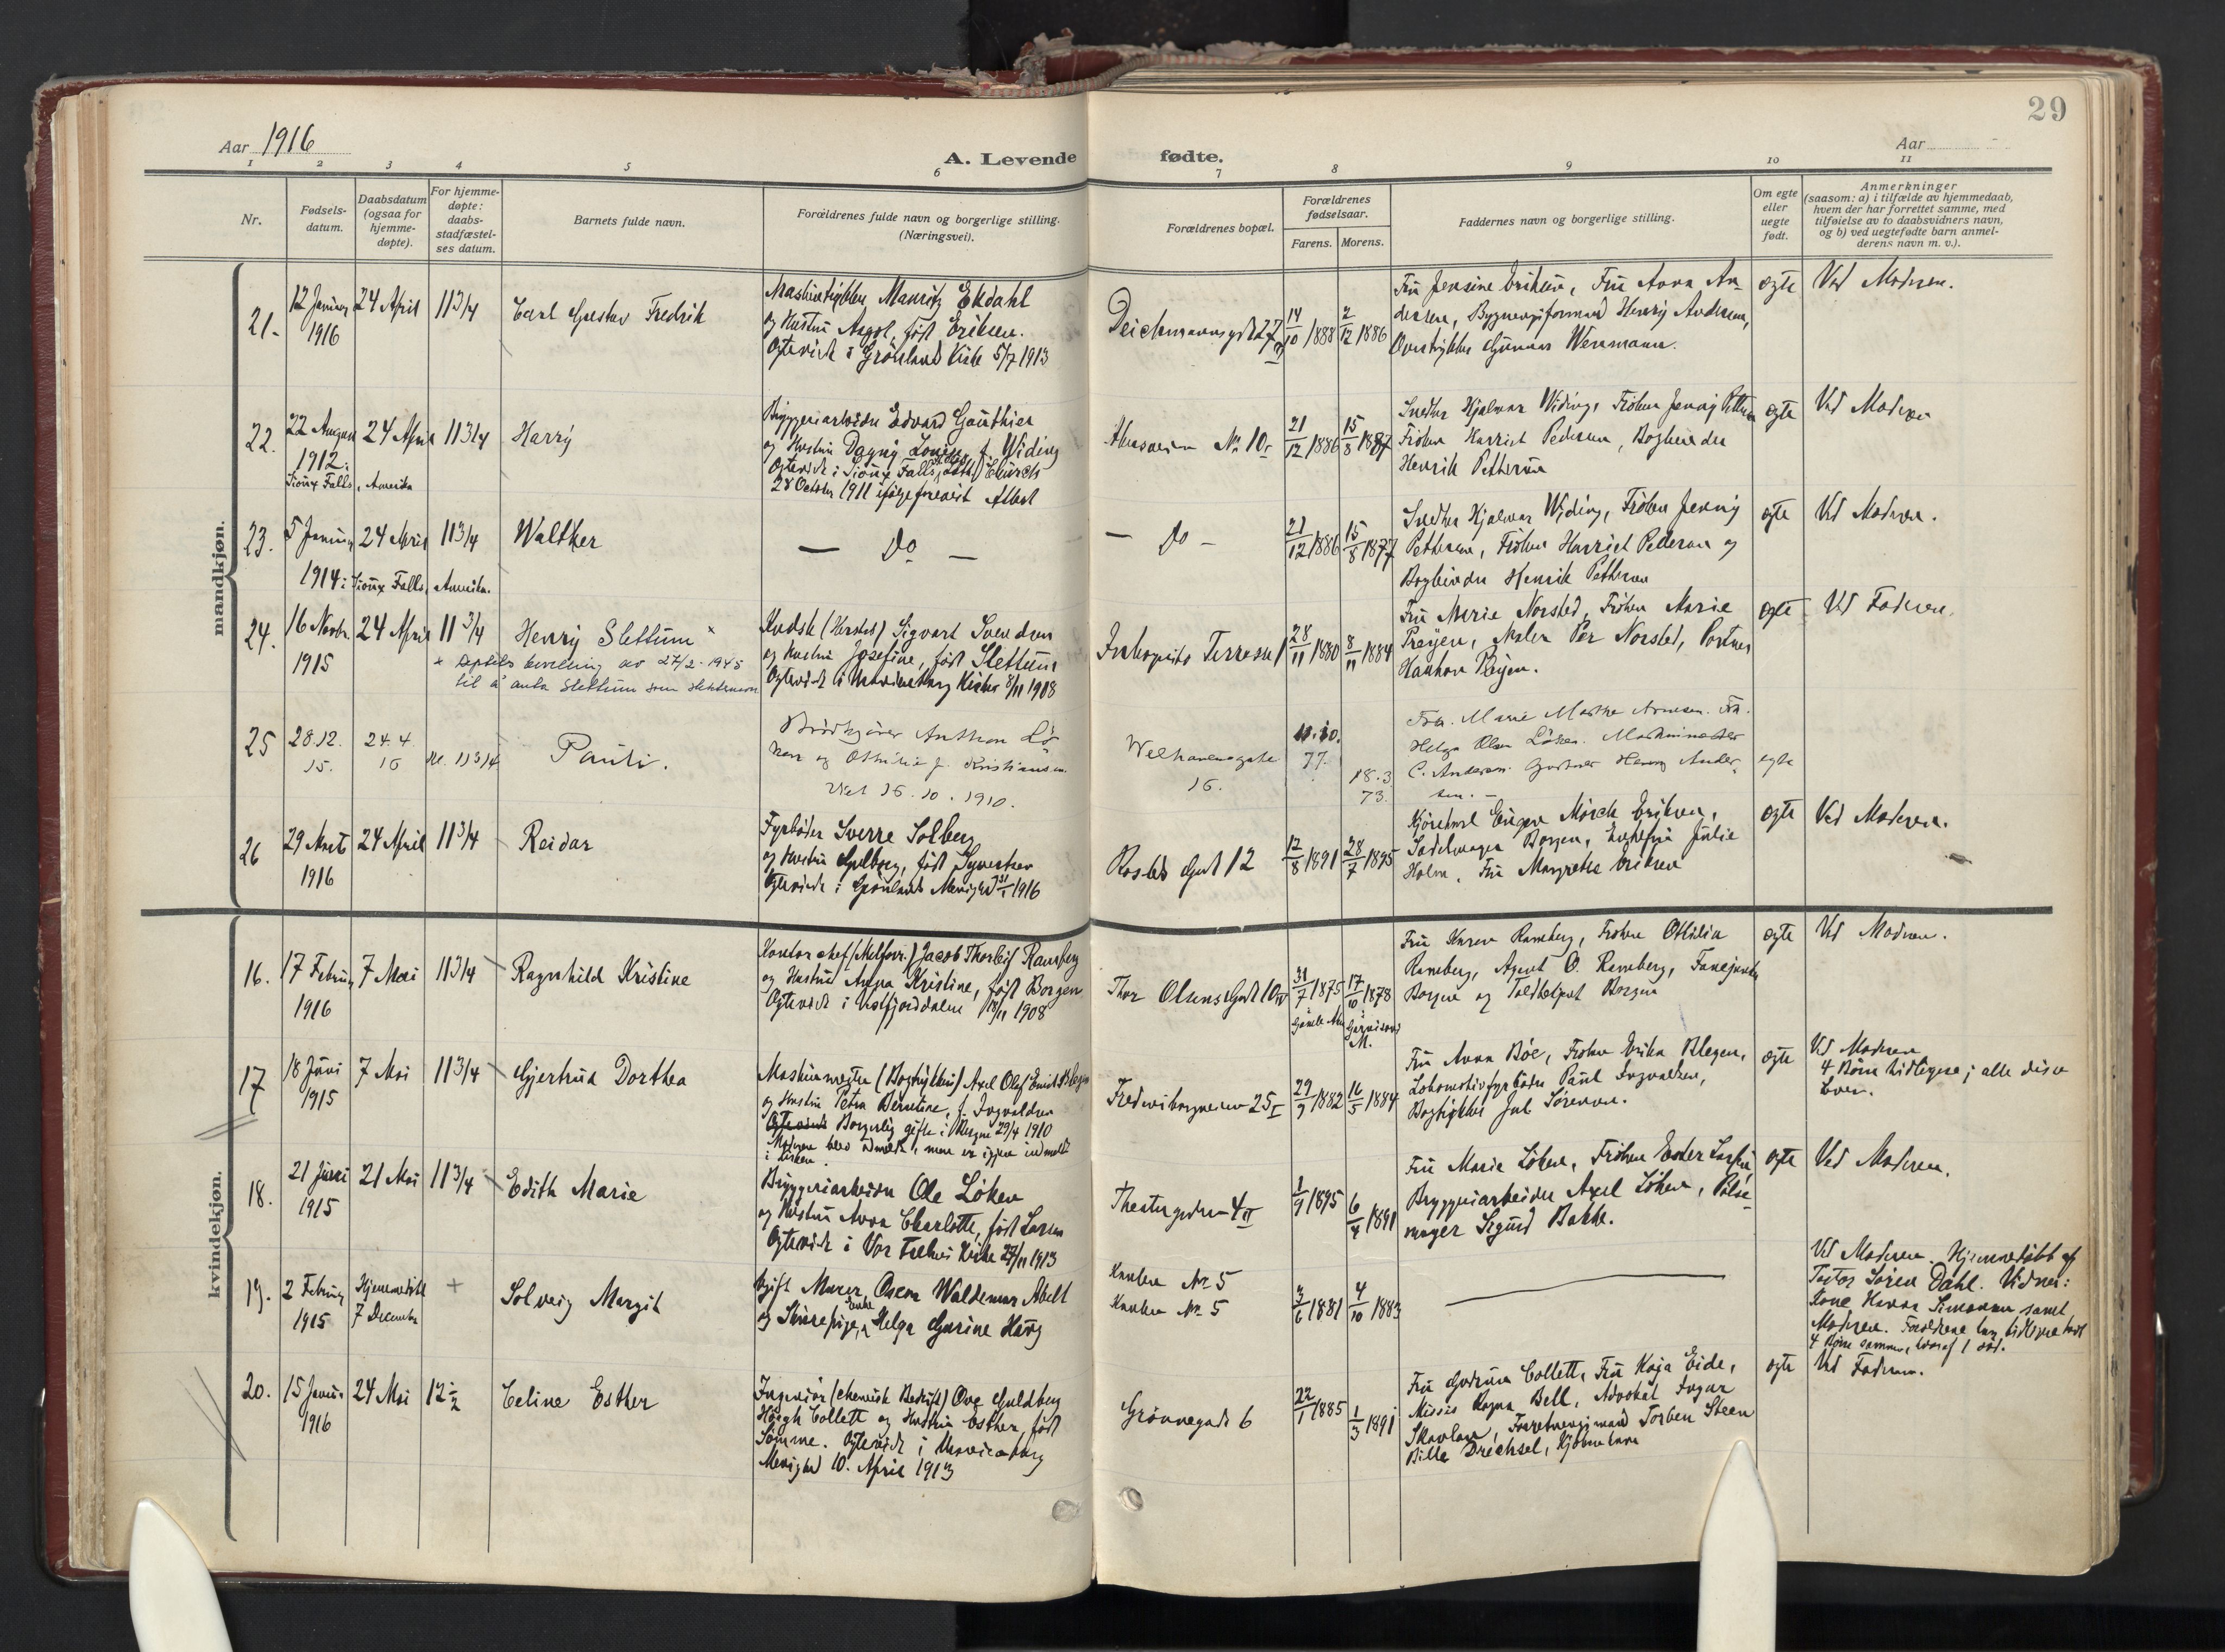 29
Aar 1916
A. Levende
fødte.
Aar
1 2 3 4 5 6 7 8 9 10 11
Nr.
Fødsels-
datum.
Daabsdatum
(ogsaa for
hjemme-
døpte).
For hjemme-
døpte:
daabs-
stadfæstel-
ses datum.
Barnets fulde navn.
Forældrenes fulde navn og borgerlige stilling.
(Næringsvei).
Forældrenes bopæl.
Forældrenes
fødselsaar.
Farens. Morens.
Faddernes navn og borgerlige stilling.
Om egte
eller
uegte
født.
Anmerkninger
(saasom: a) i tilfælde av hjemmedaab,
hvem der har forrettet samme, med
tilføielse av to daabsvidners navn,
og b) ved uegtefødte barn anmel-
derens navn m. v.).
mandkjøn.
21.
12 Januar
1916
24 April
11 3/4
Carl Gustav Fredrik
Mauritz Ekdahl
og Hustru Aagot, født Eriksen.
Egteviet i Grönlands Kirke 5/7 1913
Deichmannsgd 27
14/10 1888
2/12 1886
Fru Jensine Eriksen, Fru Anna An-
dersen, Henry Andersen,
Gunnar
egte
Ved Moderen.
22.
22 August
1912.
Sioux Falls, Amerika
24 April
11 3/4
Harry
Bryggeriarbeider Edvard Gauthier
og Hustru Dagny Lovise, f. Widing
Egteviet i Sioux Falls, Church
28 October 1911 ifølge forevist Attest
No 10
21/12 1886
15/8 1887
Hjalmar Widing, Frøken Jenny Pettersen
Frøken Harriet Pedersen, Bogbinder
Henrik Pettersen
egte
Ved Moderen
23.
5 Januar
1914 i Sioux Falls, Amerika.
24 April
11 3/4
Walther
— Do —
— Do —
21/12 1886
15/8 1877
Hjalmar Widing, Frøken Jenny
Pettersen, Frøken Harriet Pedersen og
Bogbinder Henrik Pettersen
egte
Ved Moderen.
24.
16 Novbr.
1915
24 April
11 3/4
Henry Slettum x
x Deptets bevilling av 27/2-1945
til å anta Slettum som slektsnavn
Kudsk (Hestes) Sigvart Svendsen
og Hustru Josefine, født Slettum
Egteviet i Kirke 8/11 1908
Terrasse 1
28/11 1880
8/11 1884
Fru Marie Norsted, Frøken Marie
Maler Per Norsted, Portner
egte
Ved Faderen.
25
28.12.
15.
24.4
16
Kl. 11 3/4
Pauli.
Anthon Lö-
ken og Othilie f. Kristiansen
Viet 16.10.1910.
Welhavensgate
16.
11.10.
77.
18.3
73.
Fru. Marie Marthe Arnesen. Fru.
Helga Olsen Löken. Maskinmester
C. Andersen. Gartner Henry Ander-
sen. —
egte
26
29 Marts
1916
24 April
11 3/4
Reidar
Fyrbøder Sverre Solberg
og Hustru Gudborg, født Syvertsen
Egteviet i Grönlands Menighed 31/1 1916
Rosteds Gade 12
12/8 1891
28/7 1895
Eriksen,
Sadelmager Borgen, Enkefru Julie
Holm, Fru Margrethe Eriksen
egte
Ved Moderen.
kvindekjøn.
16.
17 Februar
1916
7 Mai
11 3/4
Ragnhild Kristine
Kontorchef Jacob Thorleif Ramberg
og Hustru Anna Kristine, født Borgen
Egteviet i 18/11 1908
Thor Olsens Gade 10 IV
31/7 1875
Gamle Aker
17/10 1878
i Garnisons
M.
Fru Karen Ramberg, Frøken Othilia
Ramberg, Agent O. Ramberg,
Borgen og Borgen
egte
Ved Moderen.
17
18 Juni
1915
7 Mai
11 3/4
Gjertrud Dorthea
Maskinmester Axel Olaf Emil
og Hustru Petra Berntine, f. Ingvaldsen
Borgerlig gifte i Bergen 29/4 1910
Moderen blev udmeldt, men er igjen indmeldt
i Kirken.
Fredensborgveien 25 I
29/9 1882
16/5 1884
Fru Anna Böe, Frøken Erika Blegen,
Lokomotivfyrbøder Paul Ingvaldsen,
Bogtrykker Jul Sørensen.
egte
Ved Moderen
4 Börn tidligere; alle disse
lever.
18.
21 Juni
1915
21 Mai
11 3/4
Edith Marie
Bryggeriarbeider Ole Löken
og Hustru Anna Charlotte, født Larsen
Egteviet i Vor Frelsers Kirke 27/11 1913
Theatergaden 4 II
1/9 1895
6/4 1891
Fru Marie Löken, Frøken Ester Larsen,
Bryggeriarbeider Axel Löken, Pølse-
mager Sigurd Bakke.
egte
Ved Moderen.
19.
2 Februar
1915
Hjemmedöbt
7 December
+
Solveig Margit
Gift Murer, Oscar Waldemar Abelt
og Skurepige, Enke Helga Gurine Haug
No 5
No 5
3/6 1881
4/10 1883
Ved Moderen. Hjemmedöbt af
Pastor Sören Dahl. Vidner:
Kone Hanna Simonsen samt
Moderen. Forældrene har tidligere havt
4 Börn sammen, hvoraf 1 død.
20.
15 Januar
1916
24 Mai
12 1/2
Celine Esther
Ingeniør (chemisk Bedrift) Ove Guldberg
Høegh Collett og Hustru Esther, født
Sømme. Egteviet i Uranienborg
Menighed 10. April 1913
Grönnegade 6
22/1 1885
1/3 1891
Fru Gudrun Collett, Fru Kaja Eide,
Missis Ragna Bell, Advokat Ingar
Skavlan, Forretningsmand Torben Steen
Bille Drechsel, Kjøbenhavn
egte
Ved Faderen.